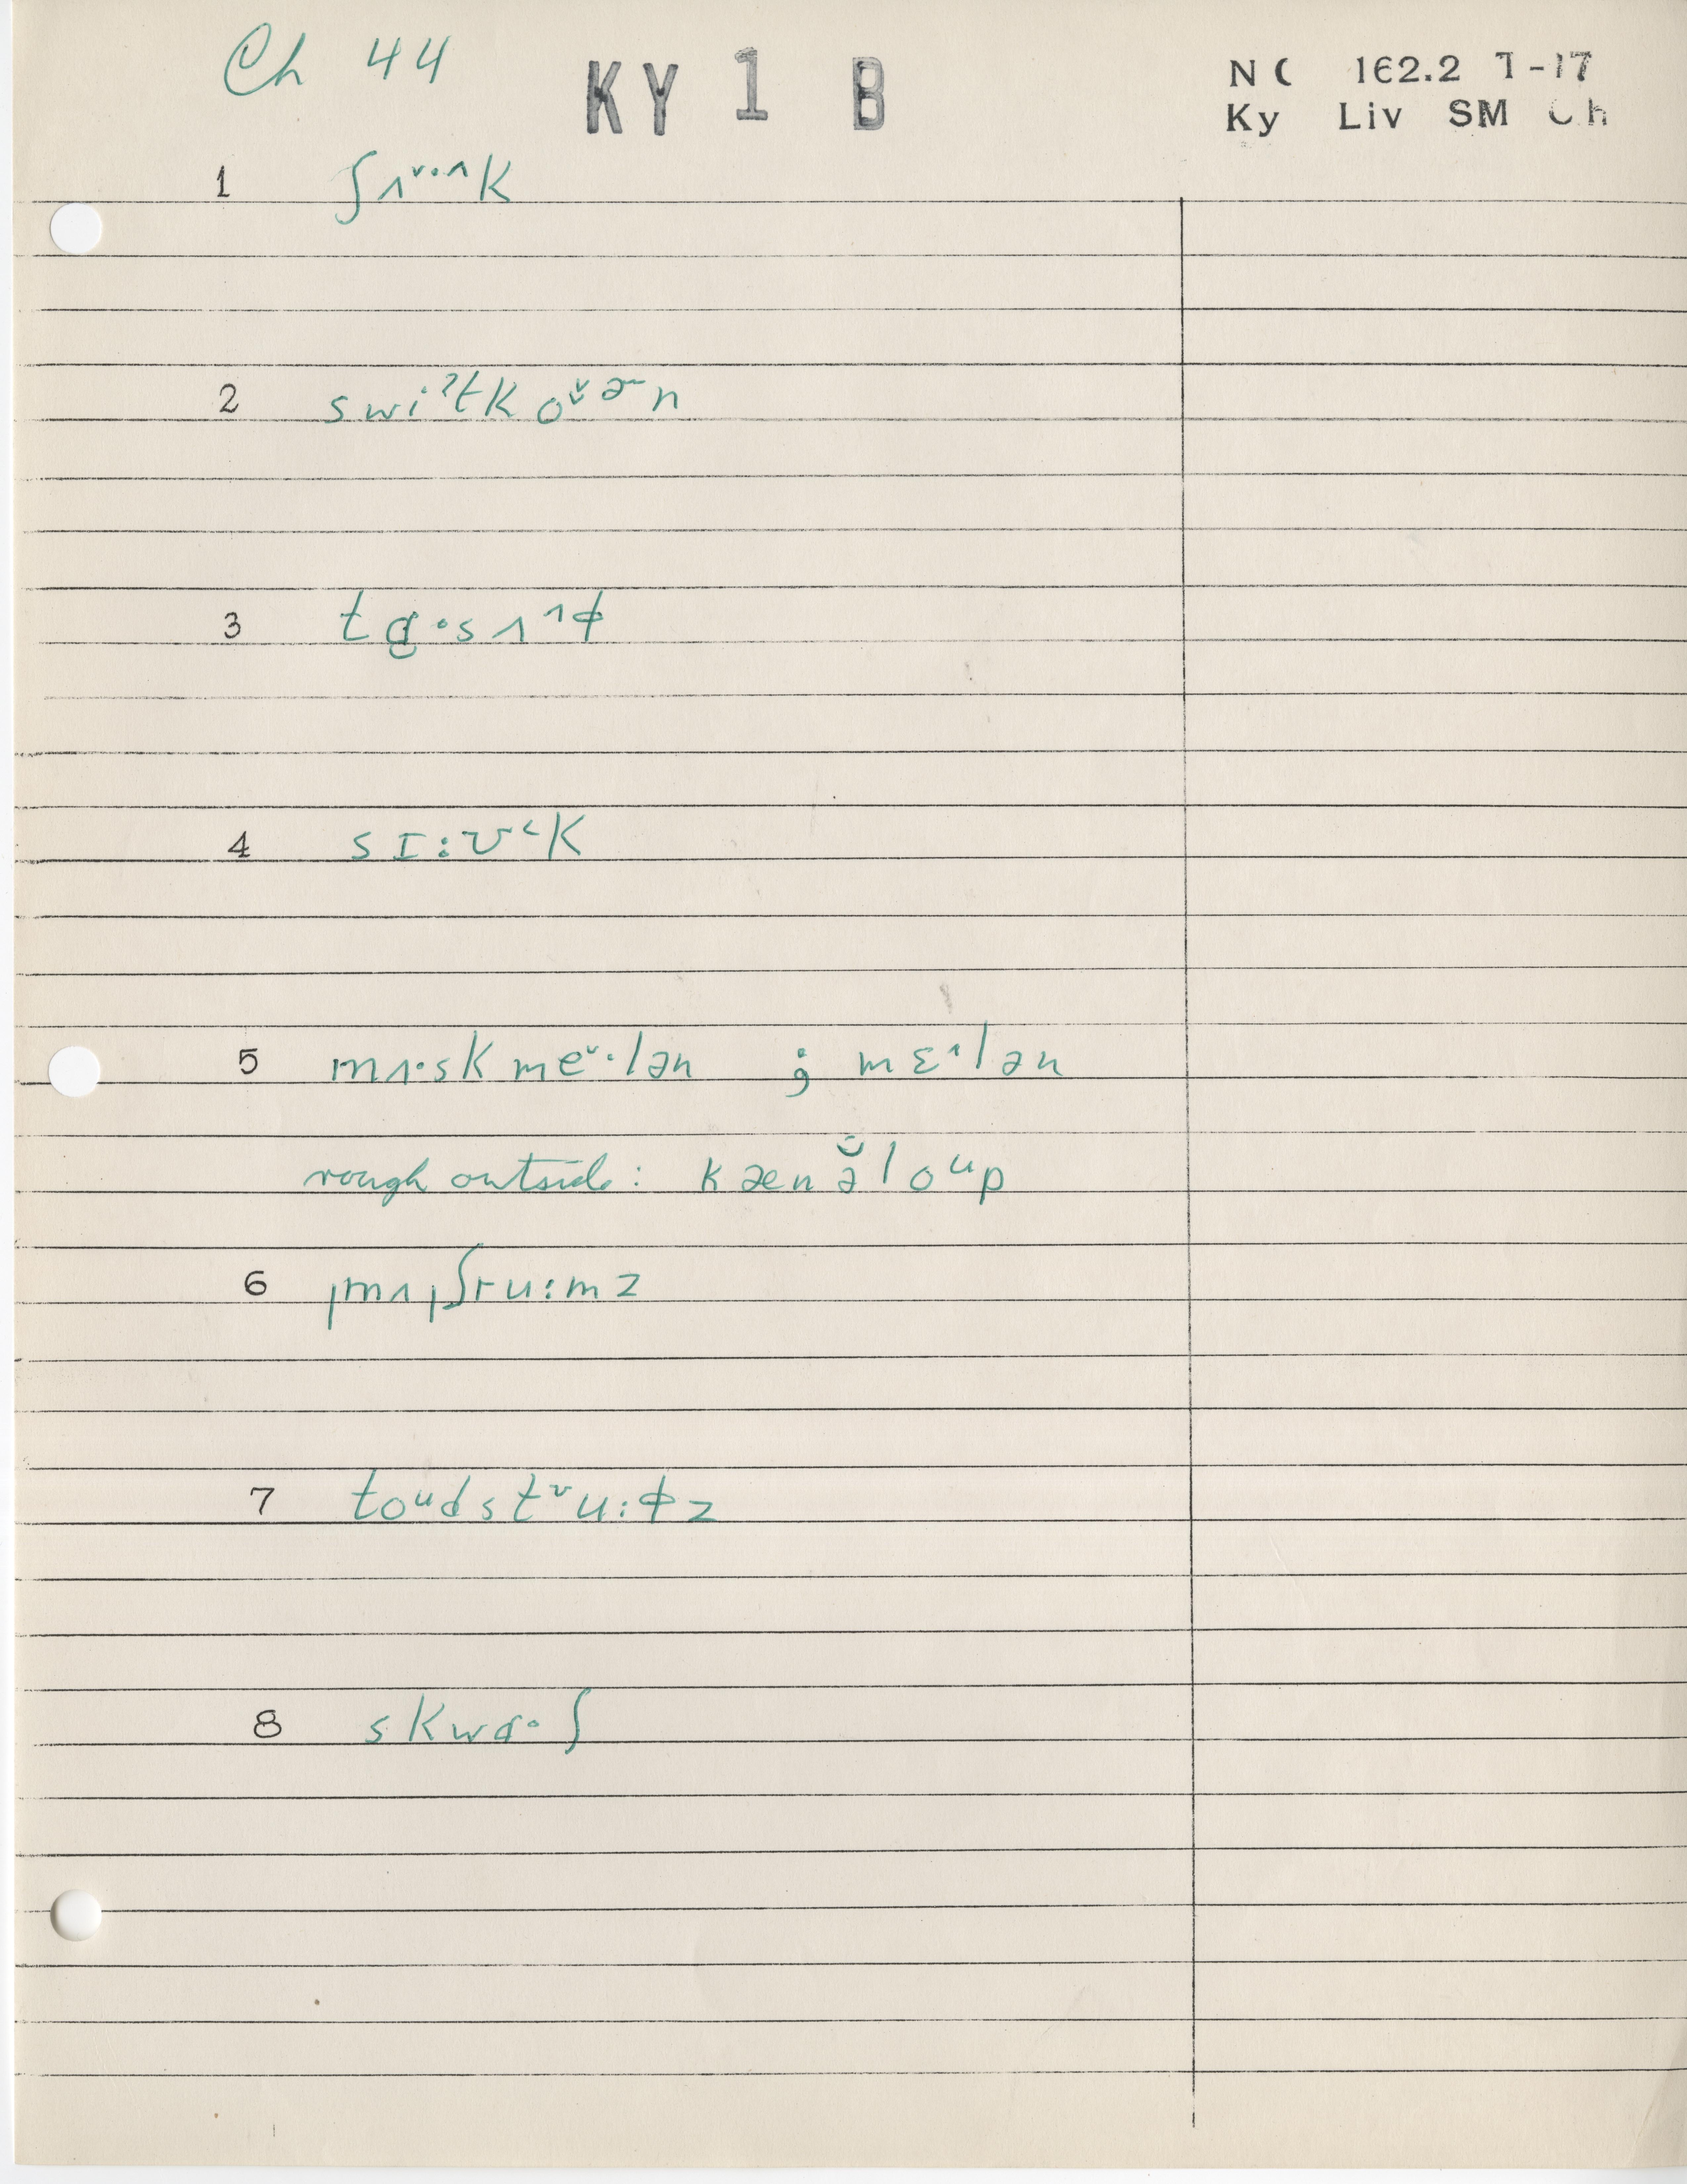 Ch 44
KY 1 B
NC 162.2 T-17
Ky Liv SM Ch
1 ʃʌᵛ·ᶺk
2 swiˑˀtkoᵛɚn
3 tɑ·sʌᶺɸ
4 sɪ:ʊ˂k
5 mʌ·sk meᵛ·lən ; mɛˆlən
rough outside: kænə̆loᵘp
6 ˌmʌˌʃru:mz
7 toᵘdstᵛu:ɸz
8 skwɑ·ʃ